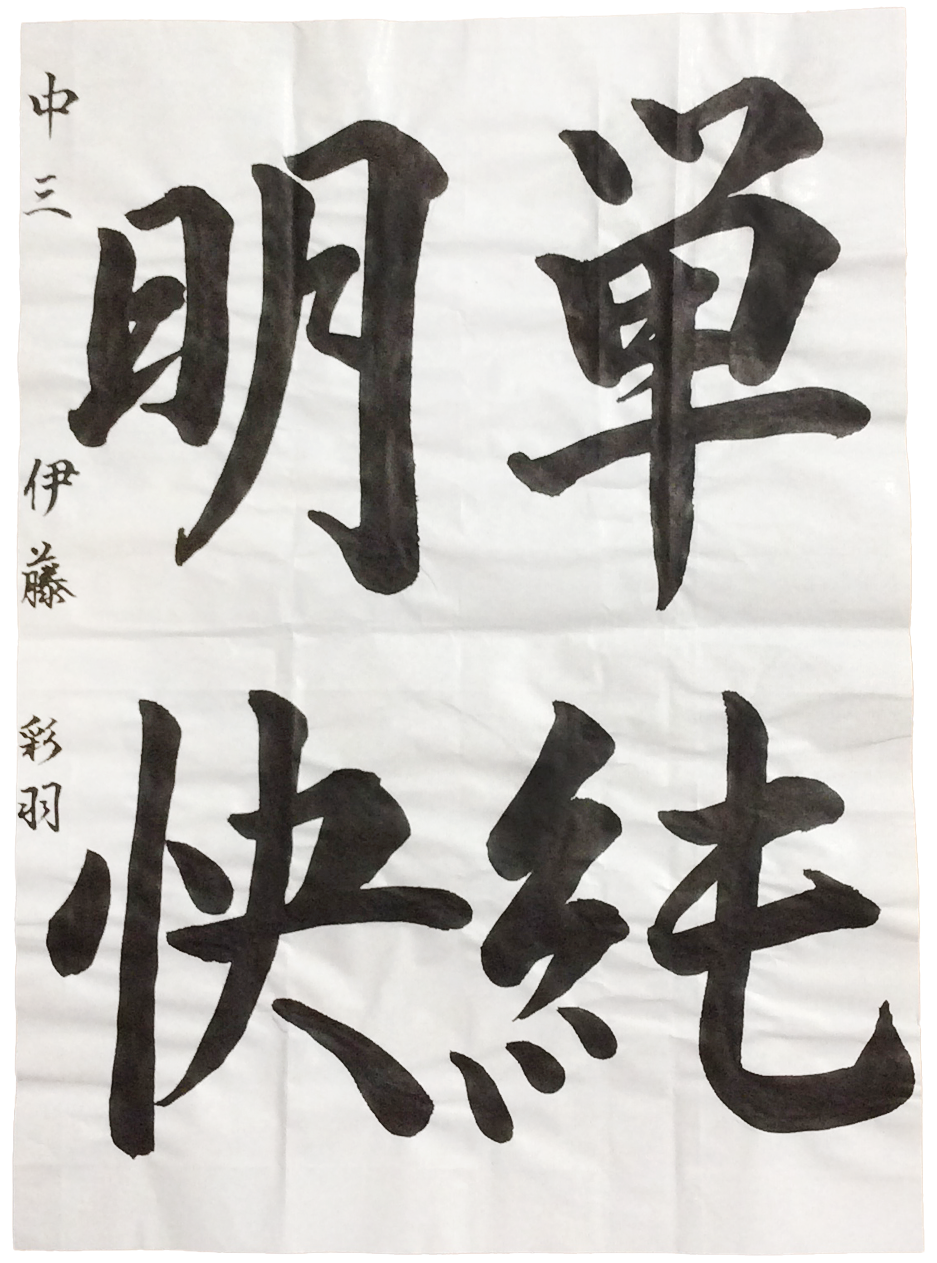 単純
明快
中三 伊藤 彩羽